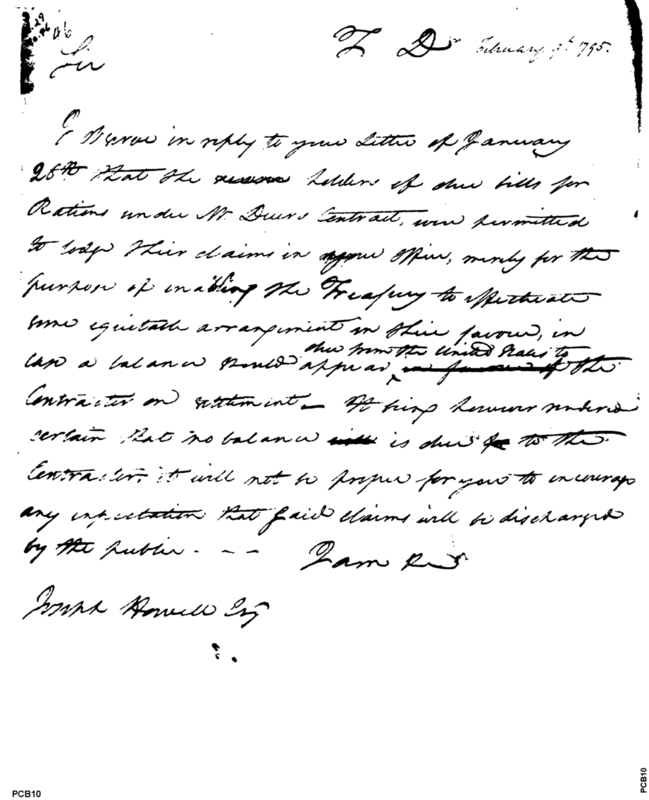 T D February 9th 1795.
Sir
I observe in reply to your Letter of January
28th that the holders of due bills for
Rations under Mr Duers Contract, were permitted
to lodge their claims in your Office, merely for the
purpose of enabling the Treasury to effectuate
some equitable arrangement in their favour, in
case a balance should appear due from the United States to in favour of the
Contractor on settlement – It being however rendered
certain that no balance is due to the
Contractor it will not be proper for you to encourage
any expectation that said claims will be discharged
by the public. – –
I am &c
Joseph Howell Esq
PCB10
PCB10